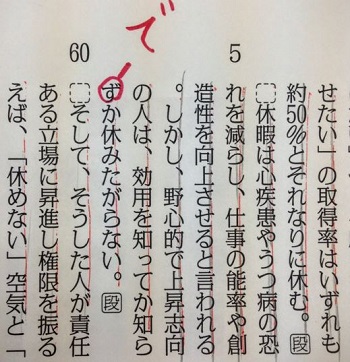 せたい」の取得率はいずれも
約50%とそれなりに休む。段
休暇は心疾患やうつ病の恐
れを減らし、仕事の能率や創
造性を向上させると言われる
。しかし、野心的で上昇志向
の人は、効用を知ってか知ら
ずか休みたがらない。段
で
そして、そうした人が責任
ある立場に昇進し権限を振る
えば、「休めない」空気と「
5
60